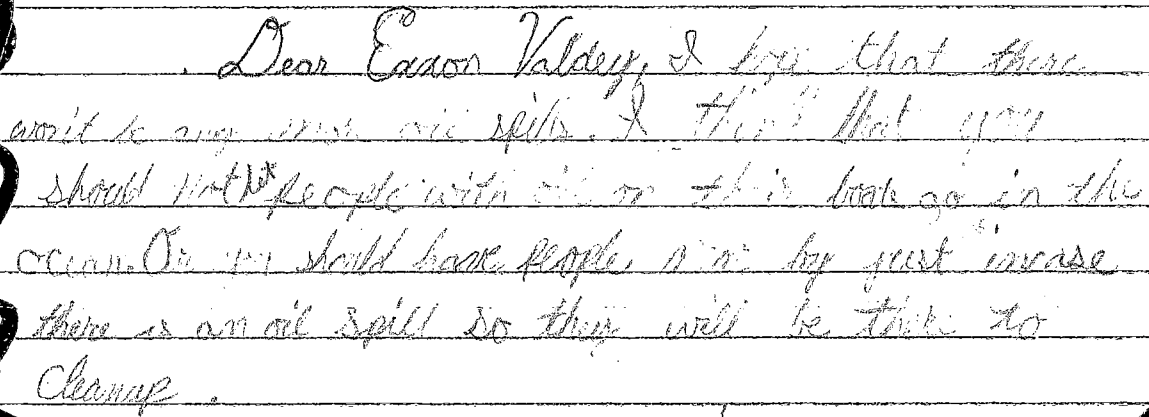 Dear Exxon Valdez, I hope that there
won't be any more oil spills. I think that you
should not let people with oil on this boat go in the
ocean. Or you should have people near by just incase
there is an oil spill so they will be there to
cleanup.